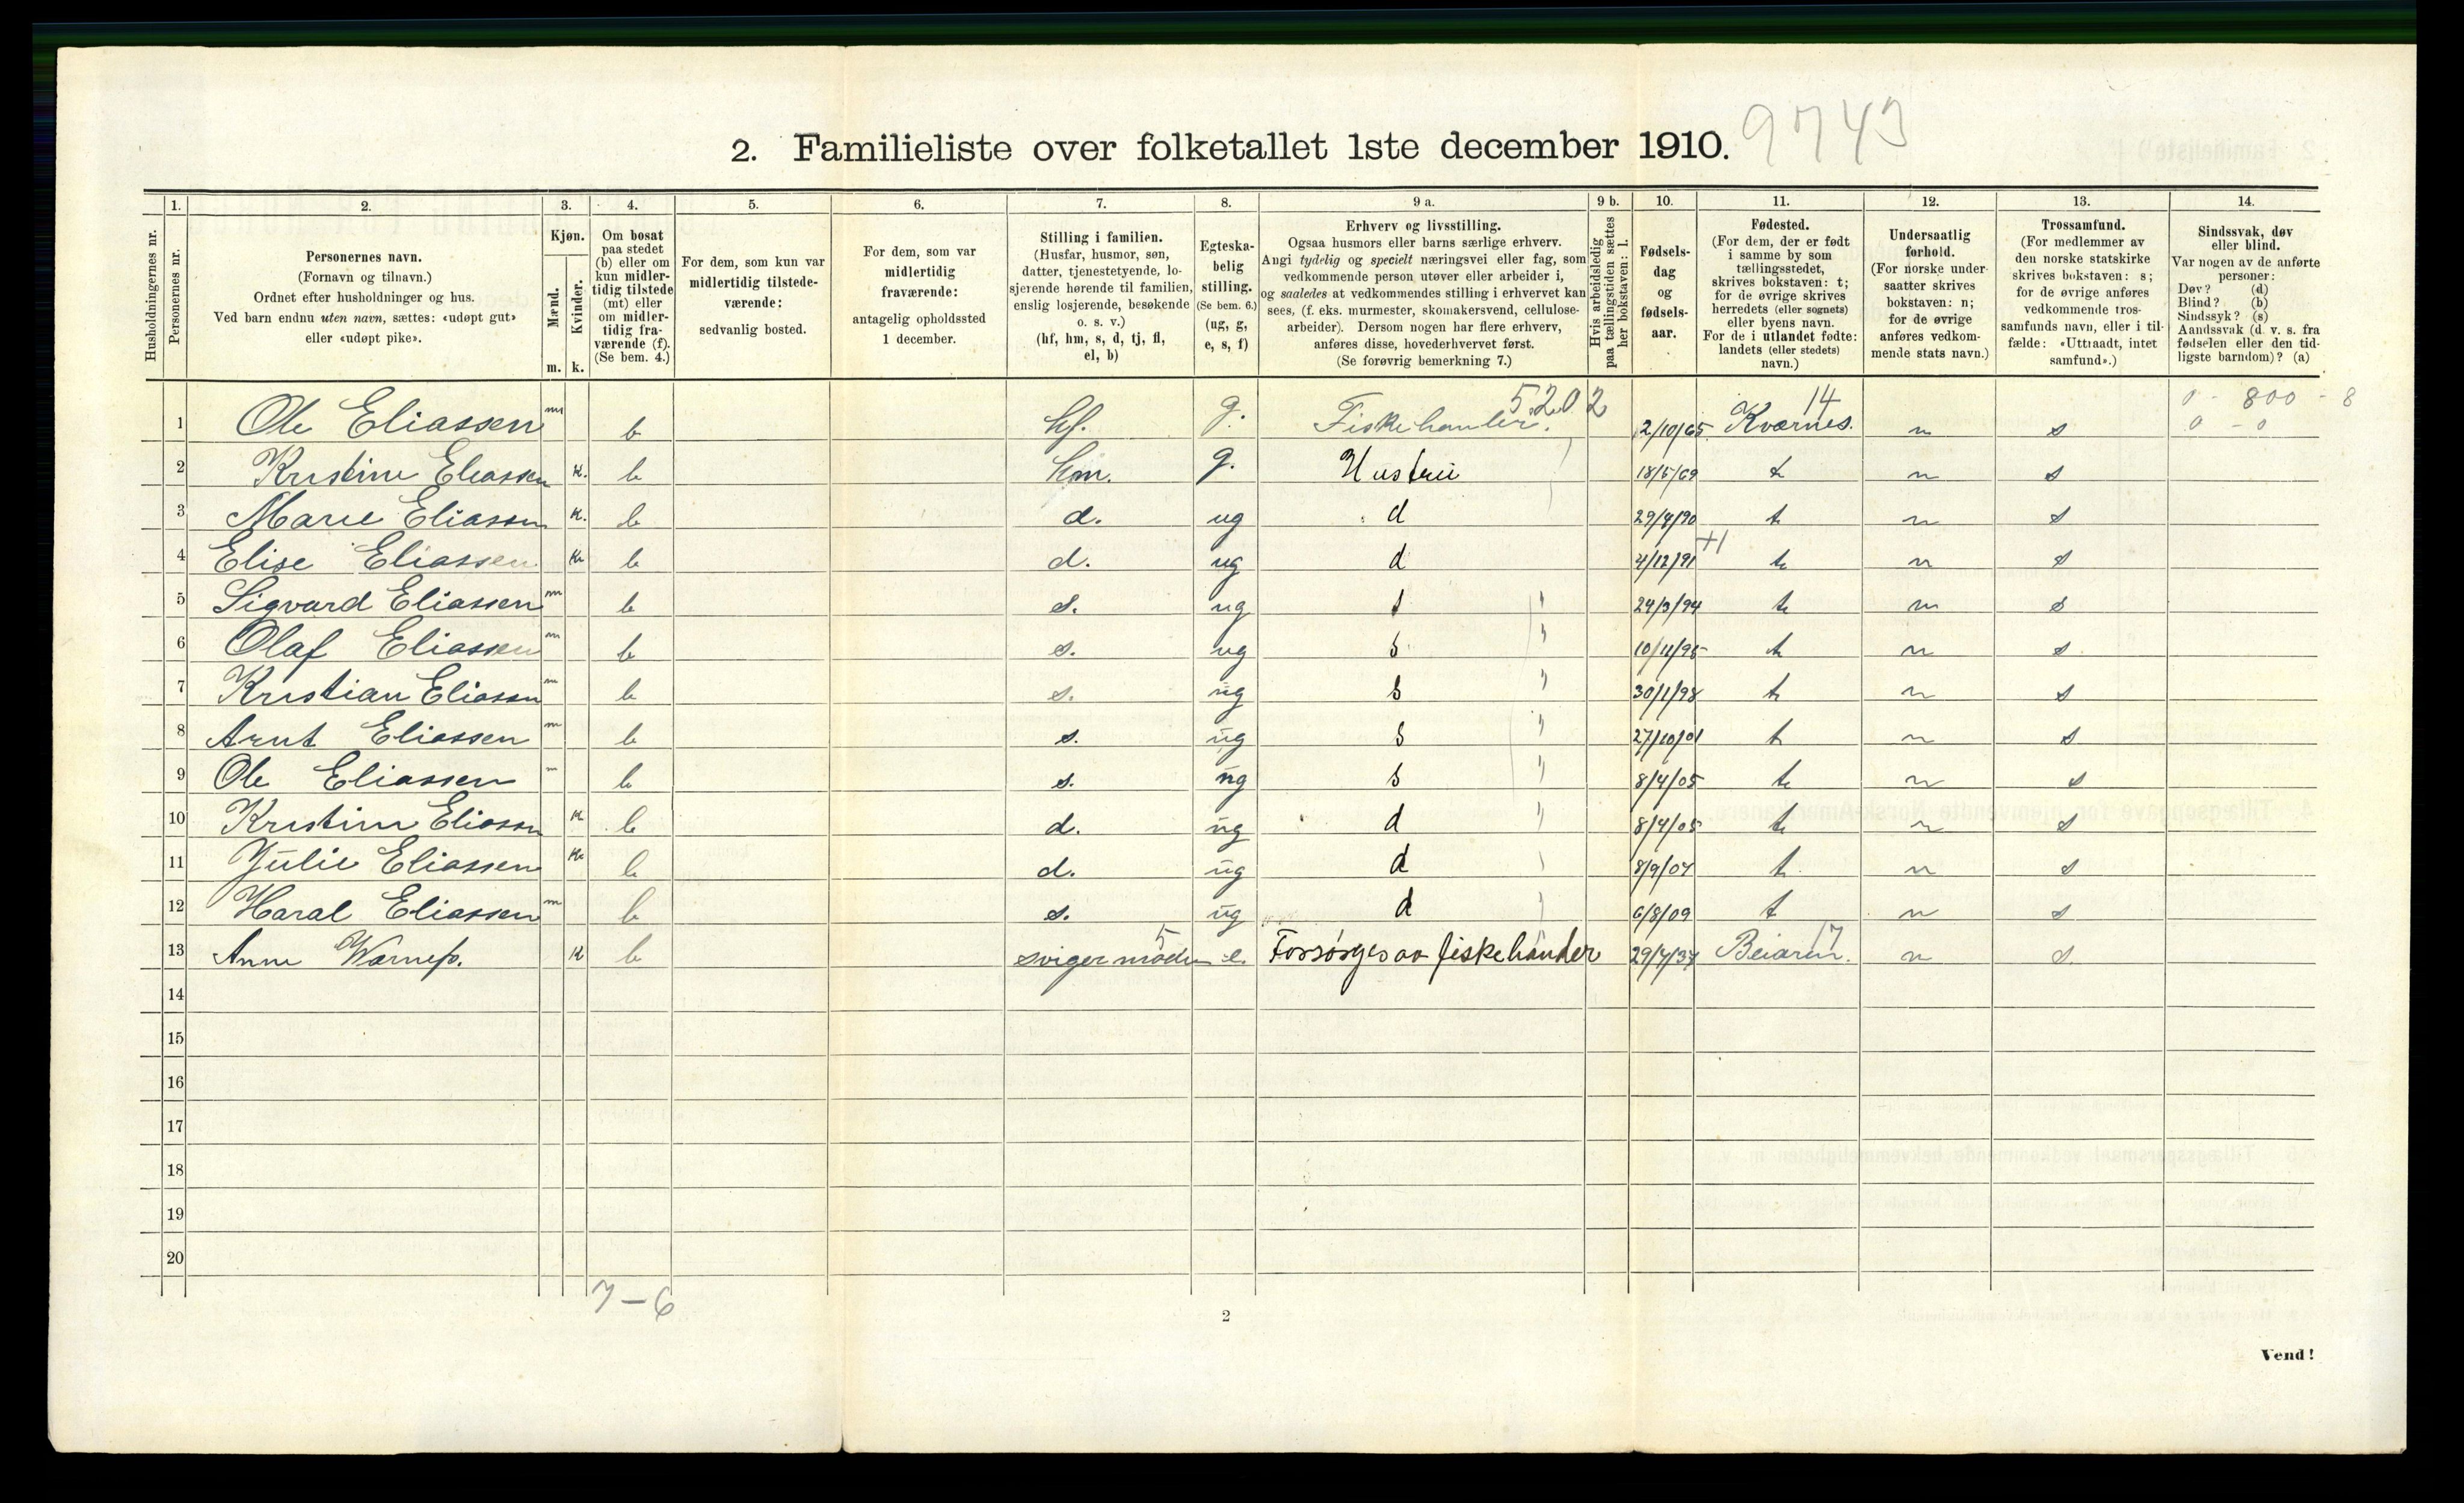 2. Familieliste over folketallet 1ste december 1910. 9743
Husholdningernes nr.
1. Personernes nr.
2. Personernes navn. (Fornavn og tilnavn.) Ordnet efter husholdninger og hus. Ved barn endnu uten navn, sættes: «udøpt gut» eller «udøpt pike».
3. Kjøn. Mænd. m. Kvinder. k.
4. Om bosat paa stedet (b) eller om kun midlertidig tilstede (mt) eller om midlertidig fraværende (f). (Se bem. 4.)
5. For dem, som kun var midlertidig tilstedeværende: sedvanlig bosted.
6. For dem, som var midlertidig fraværende: antagelig opholdssted 1 december.
7. Stilling i familien. (Husfar, husmor, søn, datter, tjenestetyende, losjerende hørende til familien, enslig losjerende, besøkende o. s. v.) (hf, hm, s, d, tj, fl, el, b)
8. Egteskabelig stilling. (Se bem. 6.) (ug, g, e, s, f)
9 a. Erhverv og livsstilling. Ogsaa husmors eller barns særlige erhverv. Angi tydelig og specielt næringsvei eller fag, som vedkommende person utøver eller arbeider i, og saaledes at vedkommendes stilling i erhvervet kan sees, (f. eks. murmester, skomakersvend, cellulosearbeider). Dersom nogen har flere erhverv, anføres disse, hovederhvervet først. (Se forøvrig bemerkning 7.)
9 b. Hvis arbeidsledig paa tællingstiden sættes her bokstaven: l.
10. Fødselsdag og fødselsaar.
11. Fødested. (For dem, der er født i samme by som tællingsstedet, skrives bokstaven: t; for de øvrige skrives herredets (eller sognets) eller byens navn. For de i utlandet fødte: landets (eller stedets) navn.)
12. Undersaatlig forhold. (For norske undersaatter skrives bokstaven: n; for de øvrige anføres vedkommende stats navn.)
13. Trossamfund. (For medlemmer av den norske statskirke skrives bokstaven: s; for de øvrige anføres vedkommende trossamfunds navn, eller i tilfælde: «Uttraadt, intet samfund».)
14. Sindssvak, døv eller blind. Var nogen av de anførte personer: Døv? (d) Blind? (b) Sindssyk? (s) Aandssvak (d. v. s. fra fødselen eller den tidligste barndom)? (a)
1 Ole Eliassen m b hf. g. Fiskehanler. 5202 2/10/65 Kværnes. 14 n s 0 - 800 - 8 0 - 0
2 Kristine Eliassen k. b hm. g. Hustru 18/5/69 t n s
3 Marie Eliassen k. b d. ug d 29/4/90 t n s
4 Elise Eliassen k b d. ug d 4/12/91 +1 t n s
5 Sigvard Eliassen m b s. ug s " 24/3/94 t n s
6 Olaf Eliassen m b s. ug s " 10/11/95 t n s
7 Kristian Eliassen m b s. ug s " 30/1/98 t n s
8 Arnt Eliassen m b s. ug s " 27/10/01 t n s
9 Ole Eliassen m b s. ug s " 8/4/05 t n s
10 Kristine Eliassen k b d. ug d " 8/4/05 t n s
11 Julie Eliassen k b d. ug d " 8/9/07 t n s
12 Haral Eliassen m b s. ug d " 6/8/09 t n s
13 Anne k b svigermoder 5 e. Forsørges av fiskehander 29/4/37 Beiaren. 17 n s.
14
15
16
17
18
19
20
7 - 6
2
Vend!